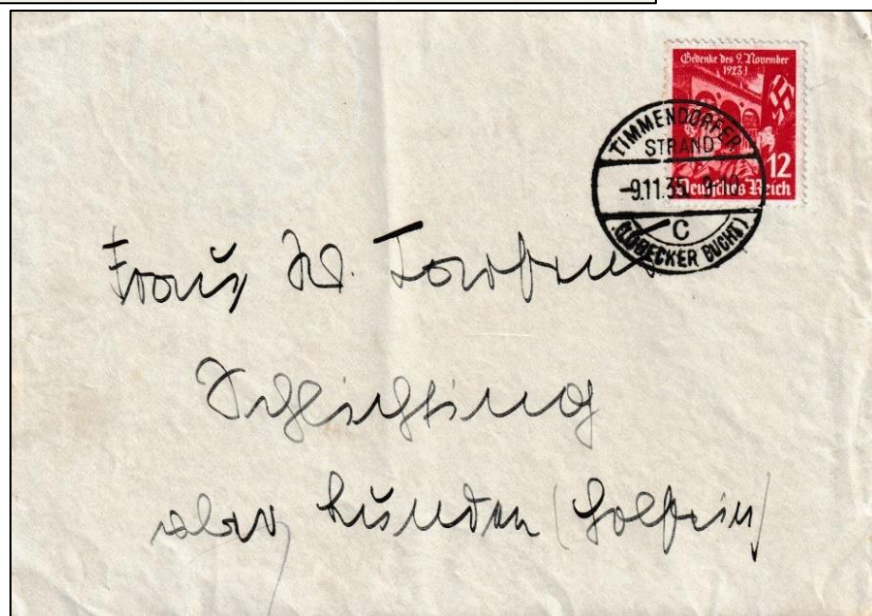 Gedenke des 9. November
1923!
12
Deutsches Reich
TIMMENDORFER
STRAND
-9.11.35.
c
(LÜBECKER BUCHT)
Frau W.
Schlichting
über Lunden (Holstein)